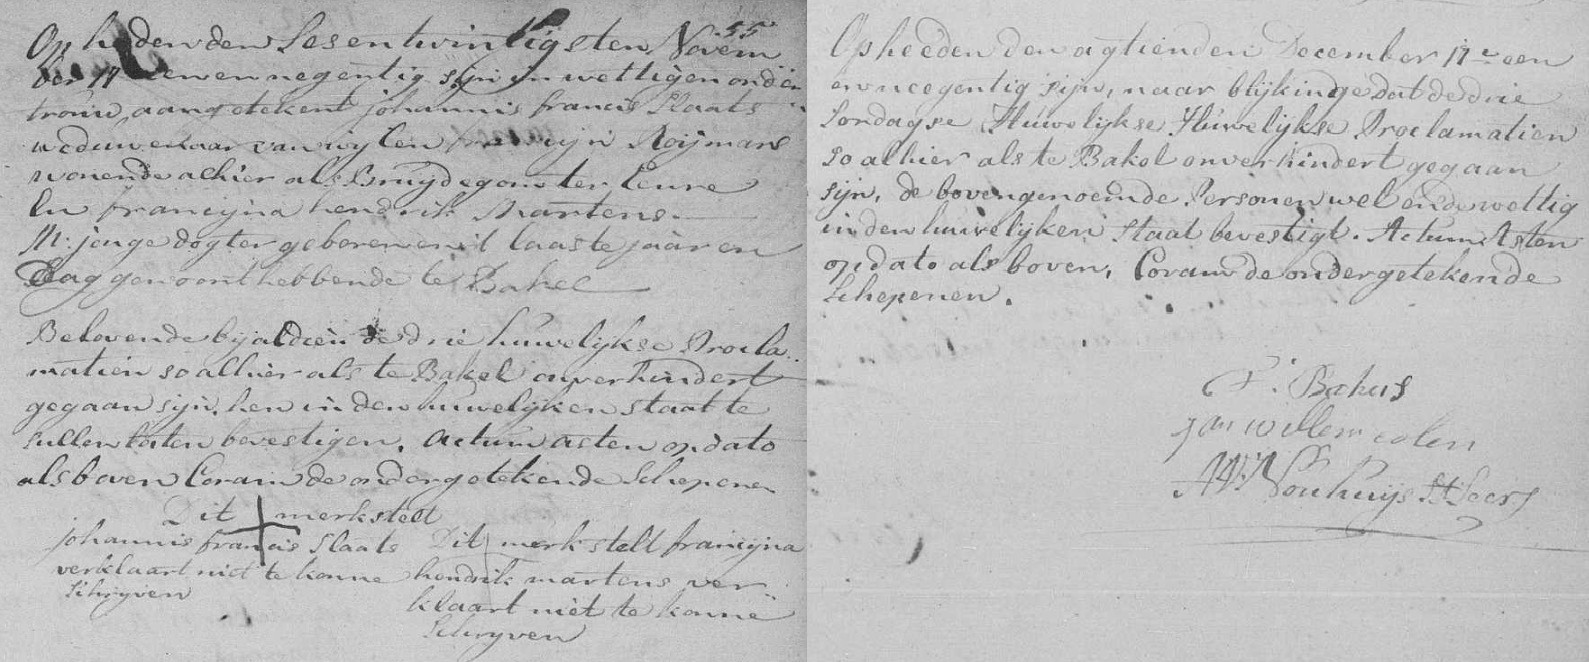 55
Op heeden den Sesentwintigsten Novem
ber 17 eenennegentig sijn in wettigen onder
trouw, aangetekent johannis francis Slaats
weduwenaar van wijlen Roijmans
wonende alhier als Bruijdegom ter eenre
En francijna hendrik Martens
M: jonge dogter geboren en 't laaste jaar en
Dag gewoont hebbende te Bakel
Belovende bijaldien de drie huwelijkse Procla
matien so alhier als te Bakel onverhindert
gegaan sijn, hen in den huwelijken staat te
sullen laten bevestigen. Actum Asten op dato
als boven Coram de ondergetekende Schepenen
Dit merk stelt
johannis francis Slaats
verklaart niet te konne
Schrijven
Dit merk stelt francijna
hendrik martens ver
klaart niet te konne
Schrijven
Op heeden den agtienden December 17 een
en neegentig sijn, naar blijkinge dat de drie
Sondagse Huwelijkse Huwelijkse Proclamatien
so alhier als te Bakel onverhindert gegaan
sijn, de bovengenoemde Personen wel ende wettig
in den huwelijken Staat bevestigt. Actum Asten
op dato als boven, Coram de ondergetekende
Schepenen.
Bakus
jan willem colen
Soukuijs Secrs